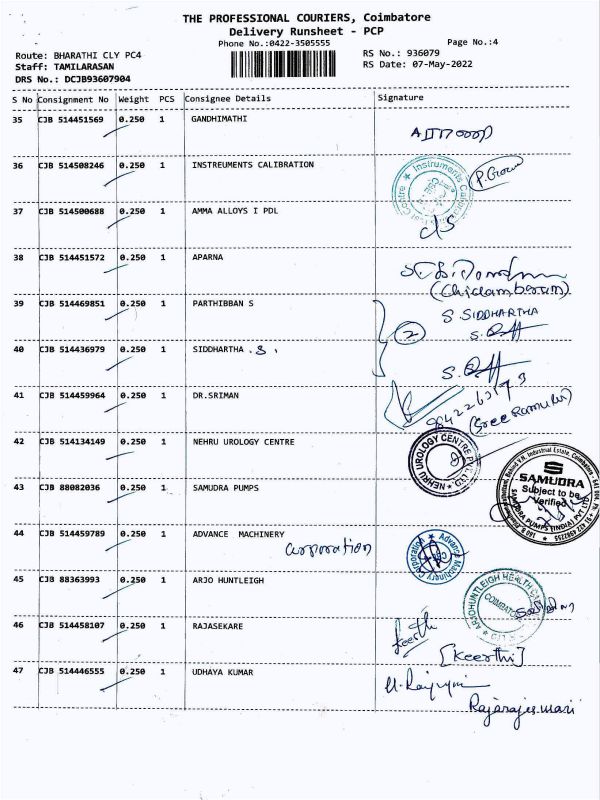 THE PROFESSIONAL COURIERS, Coimbatore
Delivery Runsheet - PCP
Phone No.:0422-3505555
Page No.:4
Route: BHARATHI CLY PC4
RS No.: 936079
Staff: TAMILARASAN
RS Date: 07-May-2022
DRS No.: DCJB93607904
S No Consignment No Weight PCS Consignee Details Signature
35 CJB 514451569 0.250 1 GANDHIMATHI
36 CJB 514508246 0.250 1 INSTREUMENTS CALIBRATION
37 CJB 514500688 0.250 1 AMMA ALLOYS I PDL
38 CJB 514451572 0.250 1 APARNA
(Chidambaram)
39 CJB 514469851 0.250 1 PARTHIBBAN S
S. SIDDHARTHA
2
40 CJB 514436979 0.250 1 SIDDHARTHA .S.
41 CJB 514459964 0.250 1 DR.SRIMAN
(Sree Ramulu)
42 CJB 514134149 0.250 1 NEHRU UROLOGY CENTRE
NEHRU UROLOGY CENTRE
43 CJB 88082036 0.250 1 SAMUDRA PUMPS
SAMUDRA
Subject to be
Verified
SAMUDRA PUMPS (INDIA) PVT LTD
44 CJB 514459789 0.250 1 ADVANCE MACHINERY
Corporation
Advance Machinery Corporation
45 CJB 88363993 0.250 1 ARJO HUNTLEIGH
ARJOHUNTLEIGH HEALTH
46 CJB 514458107 0.250 1 RAJASEKARE
Keerth
[Keerthi]
47 CJB 514446555 0.250 1 UDHAYA KUMAR
Rajarajeswari